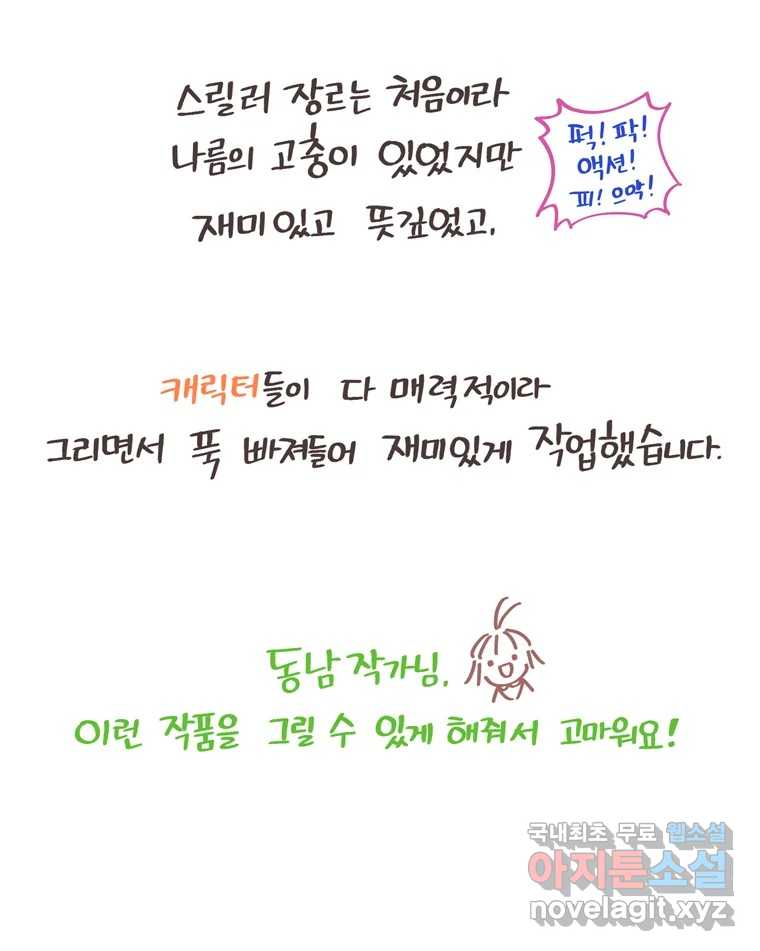 스릴러 장르는 처음이라
나름의 고충이 있었지만
재미있고 뜻깊었고,
퍽! 팍!
액션!
피! 으악!
캐릭터들이 다 매력적이라
그리면서 푹 빠져들어 재미있게 작업했습니다.
동남 작가님,
이런 작품을 그릴 수 있게 해줘서 고마워요!
국내최초 무료 웹소설
아지툰소설
novelagit.xyz